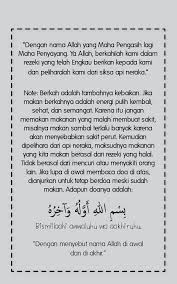 "Dengan nama Allah yang Maha Pengasih lagi
Maha Penyayang. Ya Allah, berkahilah kami dalam
rezeki yang telah Engkau berikan kepada kami
dan peliharalah kami dari siksa api neraka."
Note: Berkah adalah tambahnya kebaikan. Jika
makan berkahnya adalah energi pulih kembali,
sehat, dan semangat. Karena itu jangan
memakan makanan yang malah membuat sakit,
misalnya makan sambal terlalu banyak karena
akan menyebabkan sakit perut. Kemudian
dipelihara dari api neraka, maksudnya makanan
yang kita makan berasal dari rezeki yang halal.
Tidak berasal dari mencuri atau menyakiti orang
lain. Jika lupa di awal membaca doa di atas,
dianjurkan untuk tetap berdoa meski sudah
makan. Adapun doanya adalah:
بِسْمِ اللهِ أَوَّلُهُ وَآخِرُهُ
Bismillahi awwaluhu wa aakhiruhu.
"Dengan menyebut nama Allah di awal
dan di akhir."